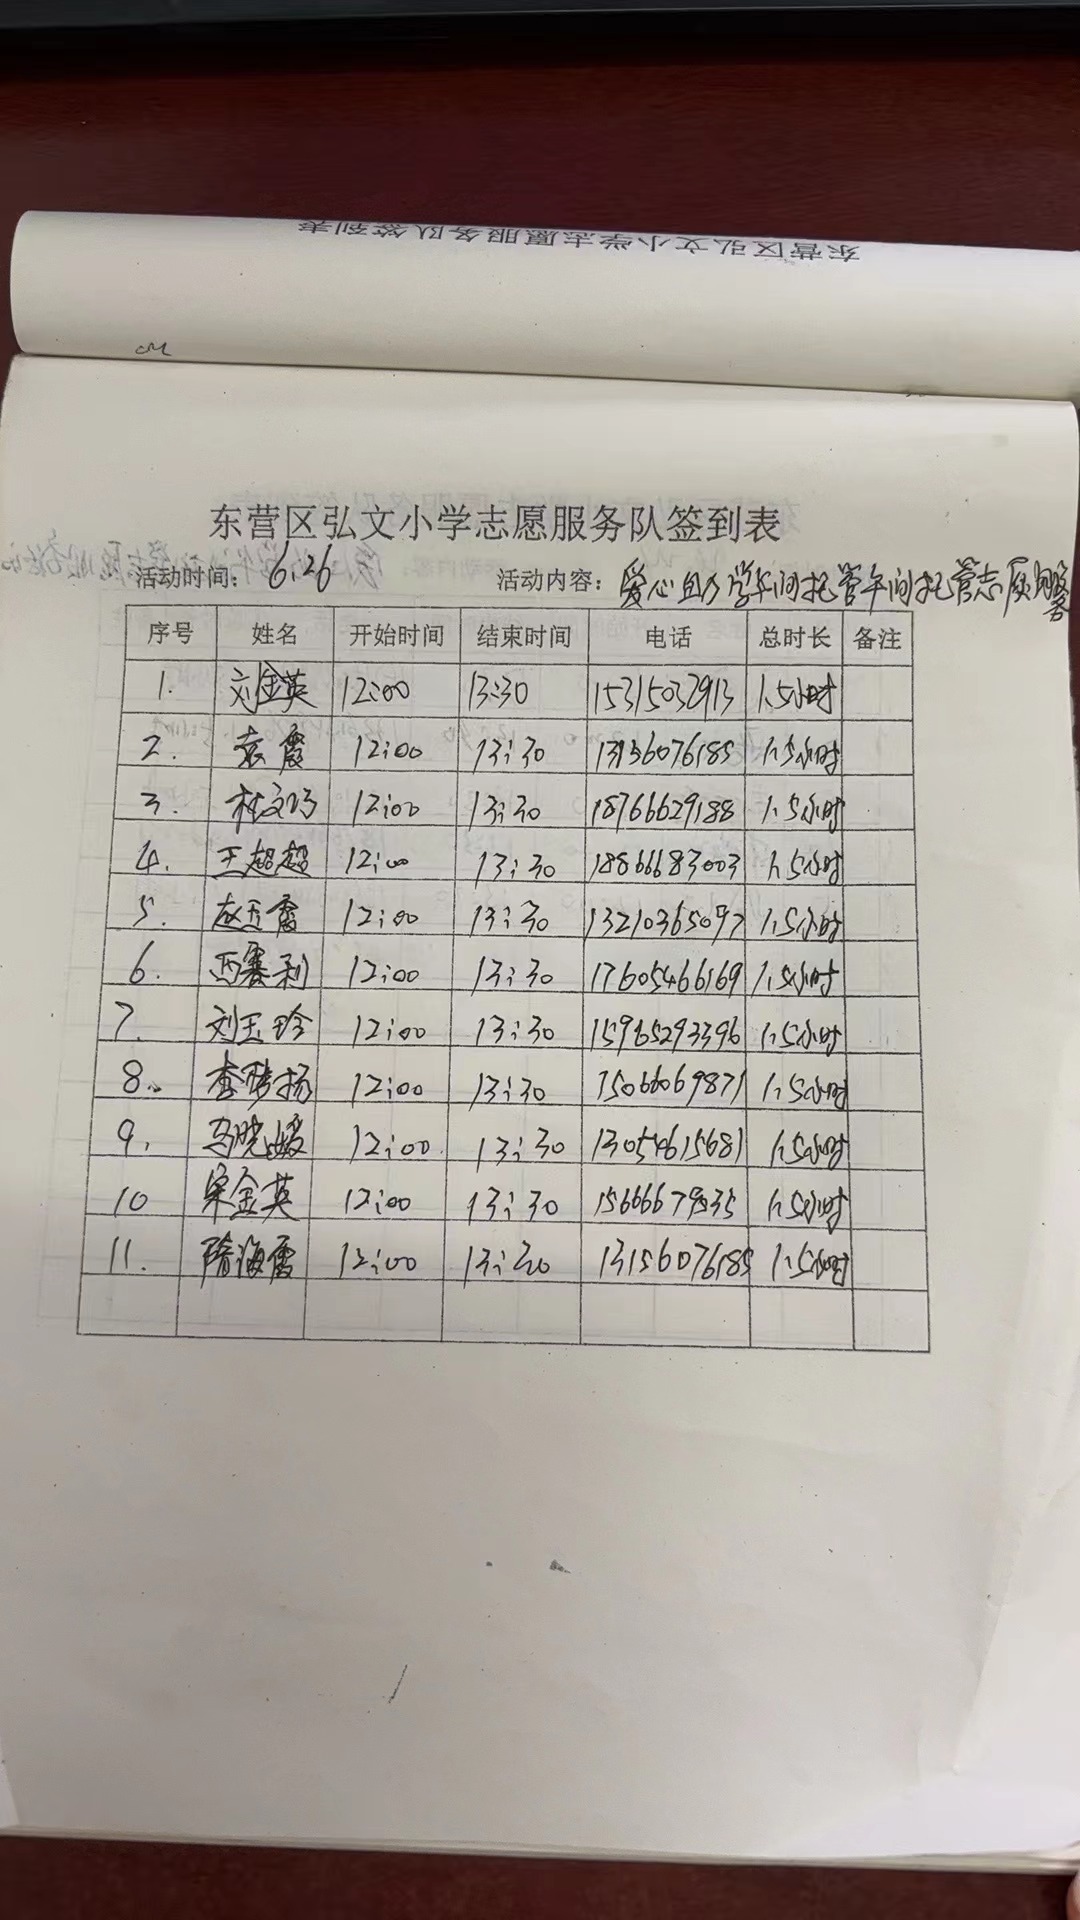 东营区弘文小学志愿服务队签到表
东营区弘文小学志愿服务队签到表
活动时间：6.26 活动内容：爱心助学午间托管午间托管志愿服务
序号 姓名 开始时间 结束时间 电话 总时长 备注
1. 刘金英 12:00 13:30 15315032913 1.5小时
2. 袁霞 12:00 13:30 13156076185 1.5小时
3. 杜文巧 12:00 13:30 18766629188 1.5小时
4. 王超超 12:00 13:30 18866683003 1.5小时
5. 赵玉雪 12:00 13:30 13210365097 1.5小时
6. 马赛利 12:00 13:30 17605466169 1.5小时
7. 刘玉珍 12:00 13:30 15965293396 1.5小时
8. 李梦扬 12:00 13:30 15066069871 1.5小时
9. 马晓媛 12:00 13:30 13054615681 1.5小时
10 宋金英 12:00 13:30 1.5小时
11. 隋海雪 12:00 13:30 13156076185 1.5小时